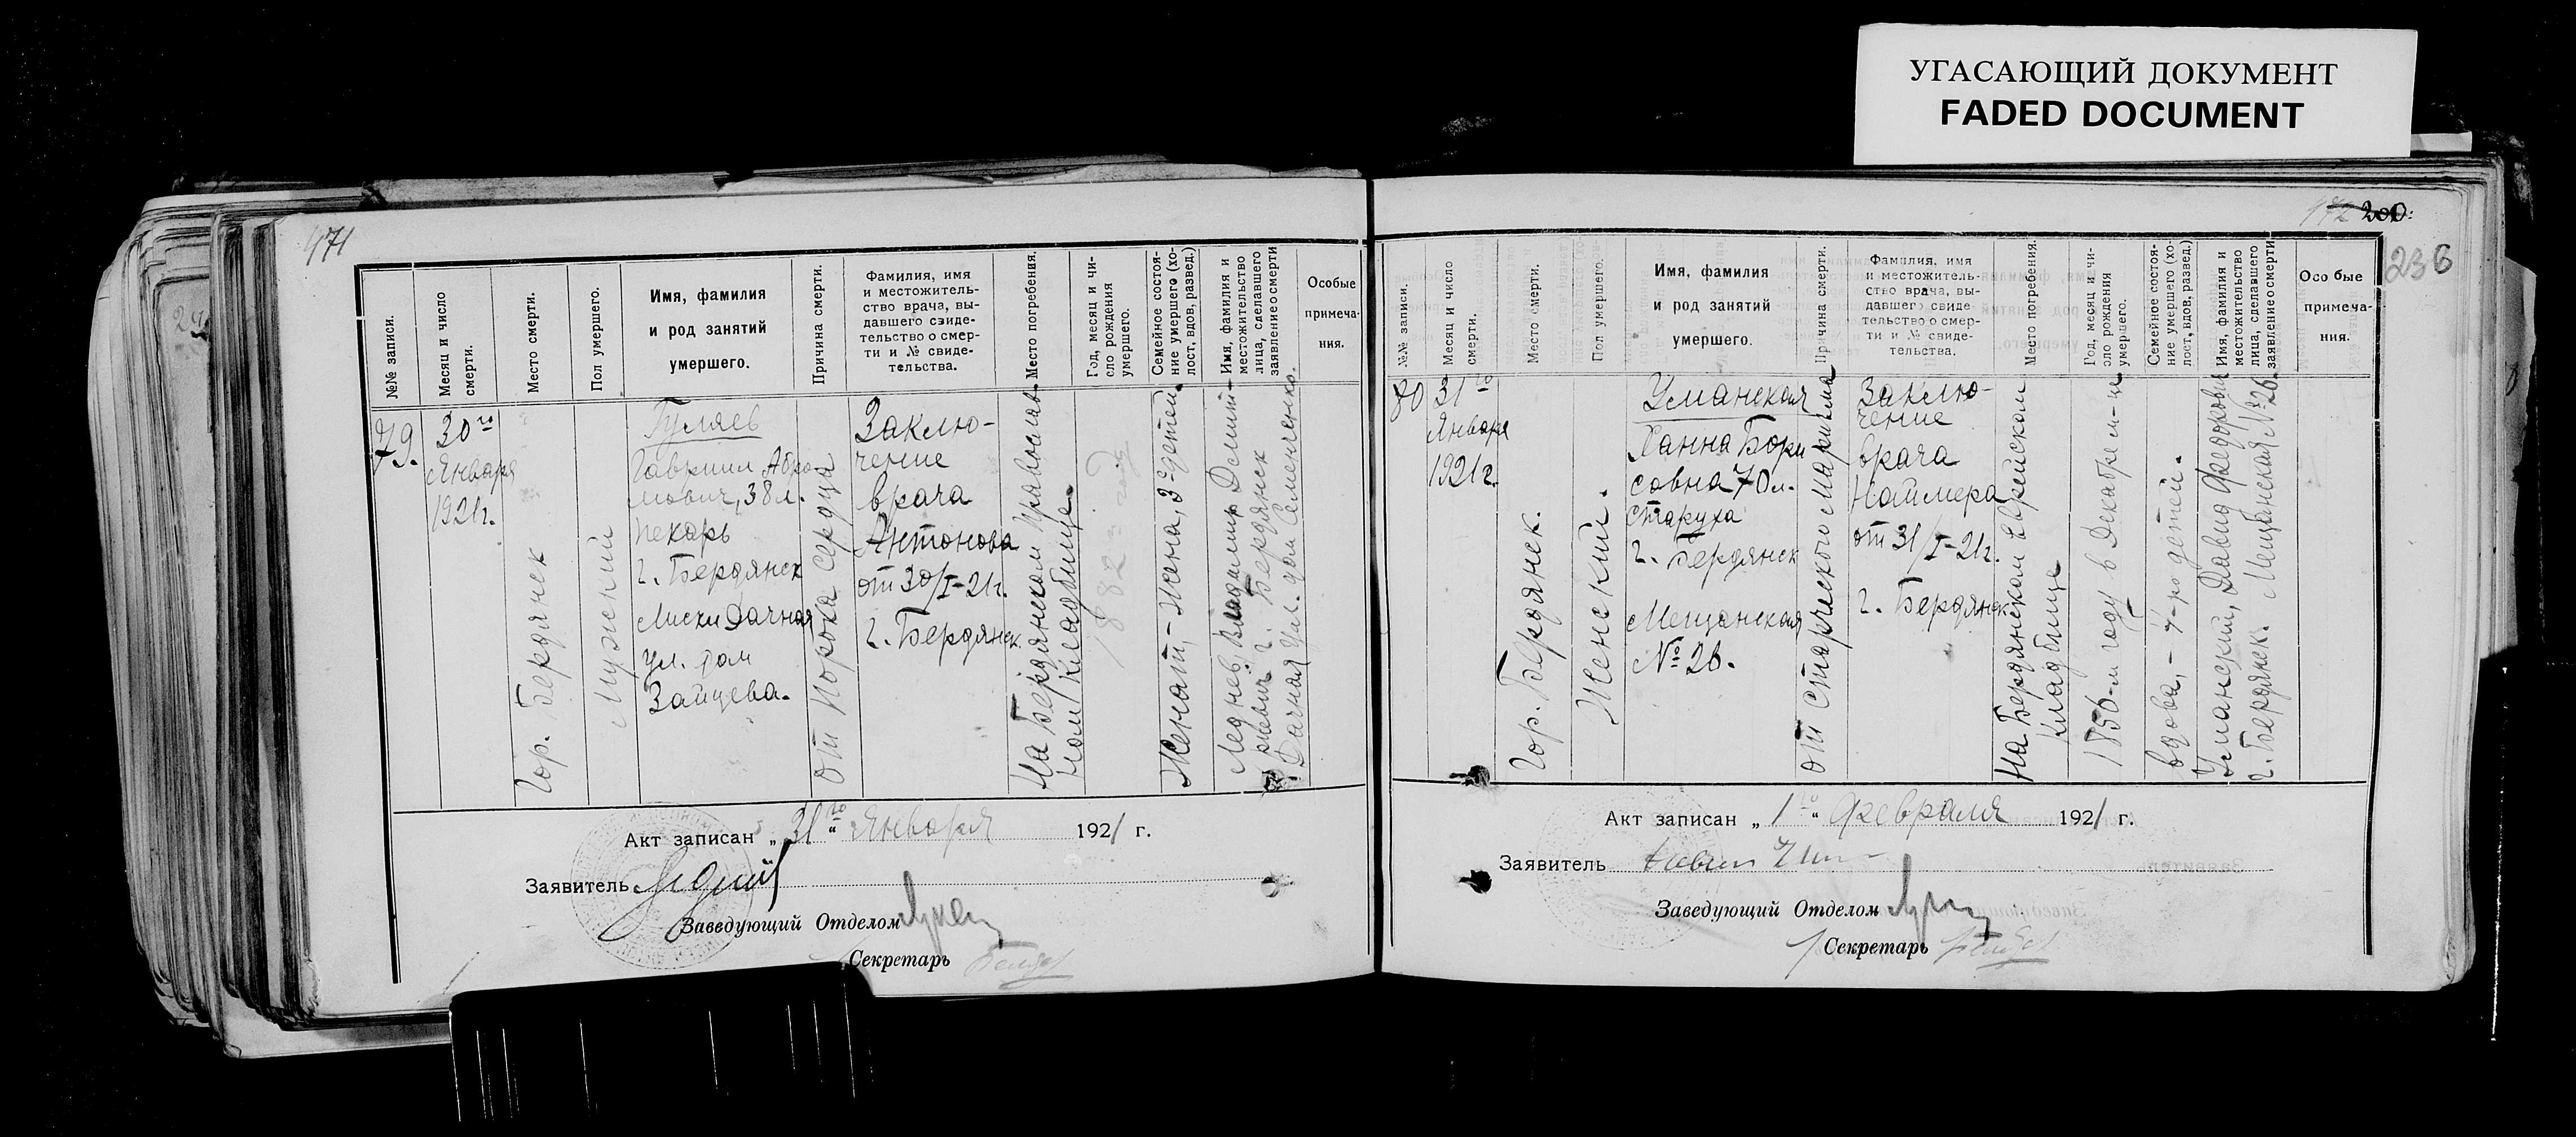 УГАСАЮЩИЙ ДОКУМЕНТ
FADED DOCUMENT
471
№№ записи.
Месяц и число
смерти.
Место смерти.
Пол умершего.
Имя, фамилия
и род занятий
умершего.
Причина смерти.
Фамилия, имя
и местожитель-
ство врача, вы-
давшего свиде-
тельство о смер-
ти и № свиде-
тельства.
Место погребения.
Год, месяц и чи-
сло рождения
умершего.
Семейное состоя-
ние умершего (хо-
лост, вдов, развед.)
Имя, фамилия и
местожительство
лица, сделавшего
заявление о смерти
Особые
примеча-
ния.
79.
30го
Января
1921г.
Гор. Бердянск
Мужский
Гуляев
Гавриил Абра
мович, 38л.
пекарь
г. Бердянск
Лиски Дачная
ул. дом
Зайцева.
от Порока сердца
Заклю-
чение
врача
Антонова
от 30/I-21г.
г. Бердянск
На Бердянском Православ-
ном Кладбище.
1882 году
Женат, - жена, 3-детей
Леднев Владимир Дмит-
риевич г. Бердянск
Дачная ул. дом Семенченко.
Акт записан „ 31го “ Января 1921 г.
Заявитель
Заведующий Отделом
Секретарь
200
236
№№ записи.
Месяц и число
смерти.
Место смерти.
Пол умершего.
Имя, фамилия
и род занятий
умершего.
Причина смерти.
Фамилия, имя
и местожитель-
ство врача, вы-
давшего свиде-
тельство о смер-
ти и № свиде-
тельства.
Место погребения.
Год, месяц и чи-
сло рождения
умершего.
Семейное состоя-
ние умершего (хо-
лост, вдов, развед.)
Имя, фамилия и
местожительство
лица, сделавшего
заявление о смерти
Особые
примеча-
ния.
80
31го
Января
1921г.
Гор. Бердянск.
Женский.
Уманская
Ханна Бори
совна 70л.
старуха
г. Бердянск
Мещанская
№ 26.
от старческого Маразма
Заклю-
чение
врача
от 31/I-21г.
г. Бердянск
На Бердянском Еврейском
Кладбище
1856-м году в Декабре м-це
вдова, - 4-ро детей.
Уманский, Давид Федорович
г. Бердянск. Мещанская № 26.
Акт записан „ 1го “ Февраля 1921 г.
Заявитель
Заведующий Отделом
Секретарь